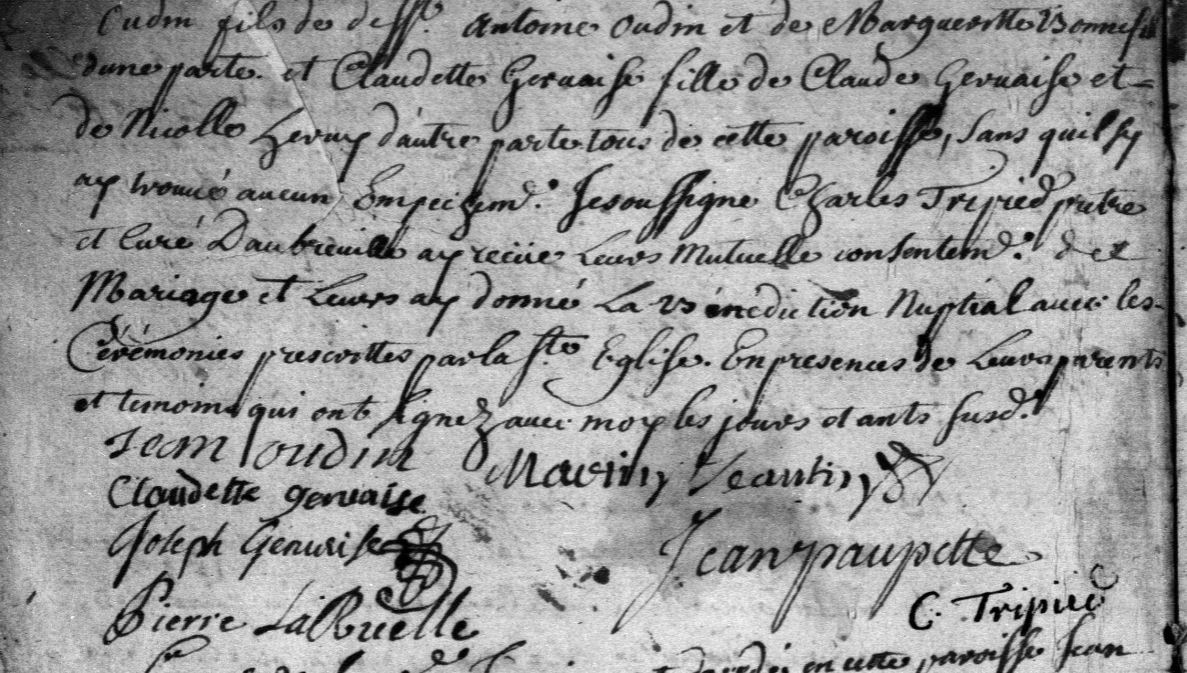 Oudin fils de deff.t Antoine Oudin et de Marguerotte Bonnefi
dune parte. et Claudette Gervaise fille de Claude Gervaise et=
de Nicolle Hervy d'autre parte tous de cette paroisse, Sans quil sy
ay trouvé aucun Empechem.t Je soussigne Charles Tripied pretre
et Curé Daubreville ay reciüe Leurs Mutuelle consentem.t de
Mariage et Leurs ay donné La Bénédiction Nuptial avec les
Cérémonies prescrittes par la S.te Eglise. En presences de Leurs parents
et temoins qui ont signez avec moy les jours et ants susd.t
Jean oudin
Marin Jeantin
Claudette gervaise
Joseph Gervaise
Jean paupette
Pierre La Ruelle
C. Tripied
en cette paroisse Jean